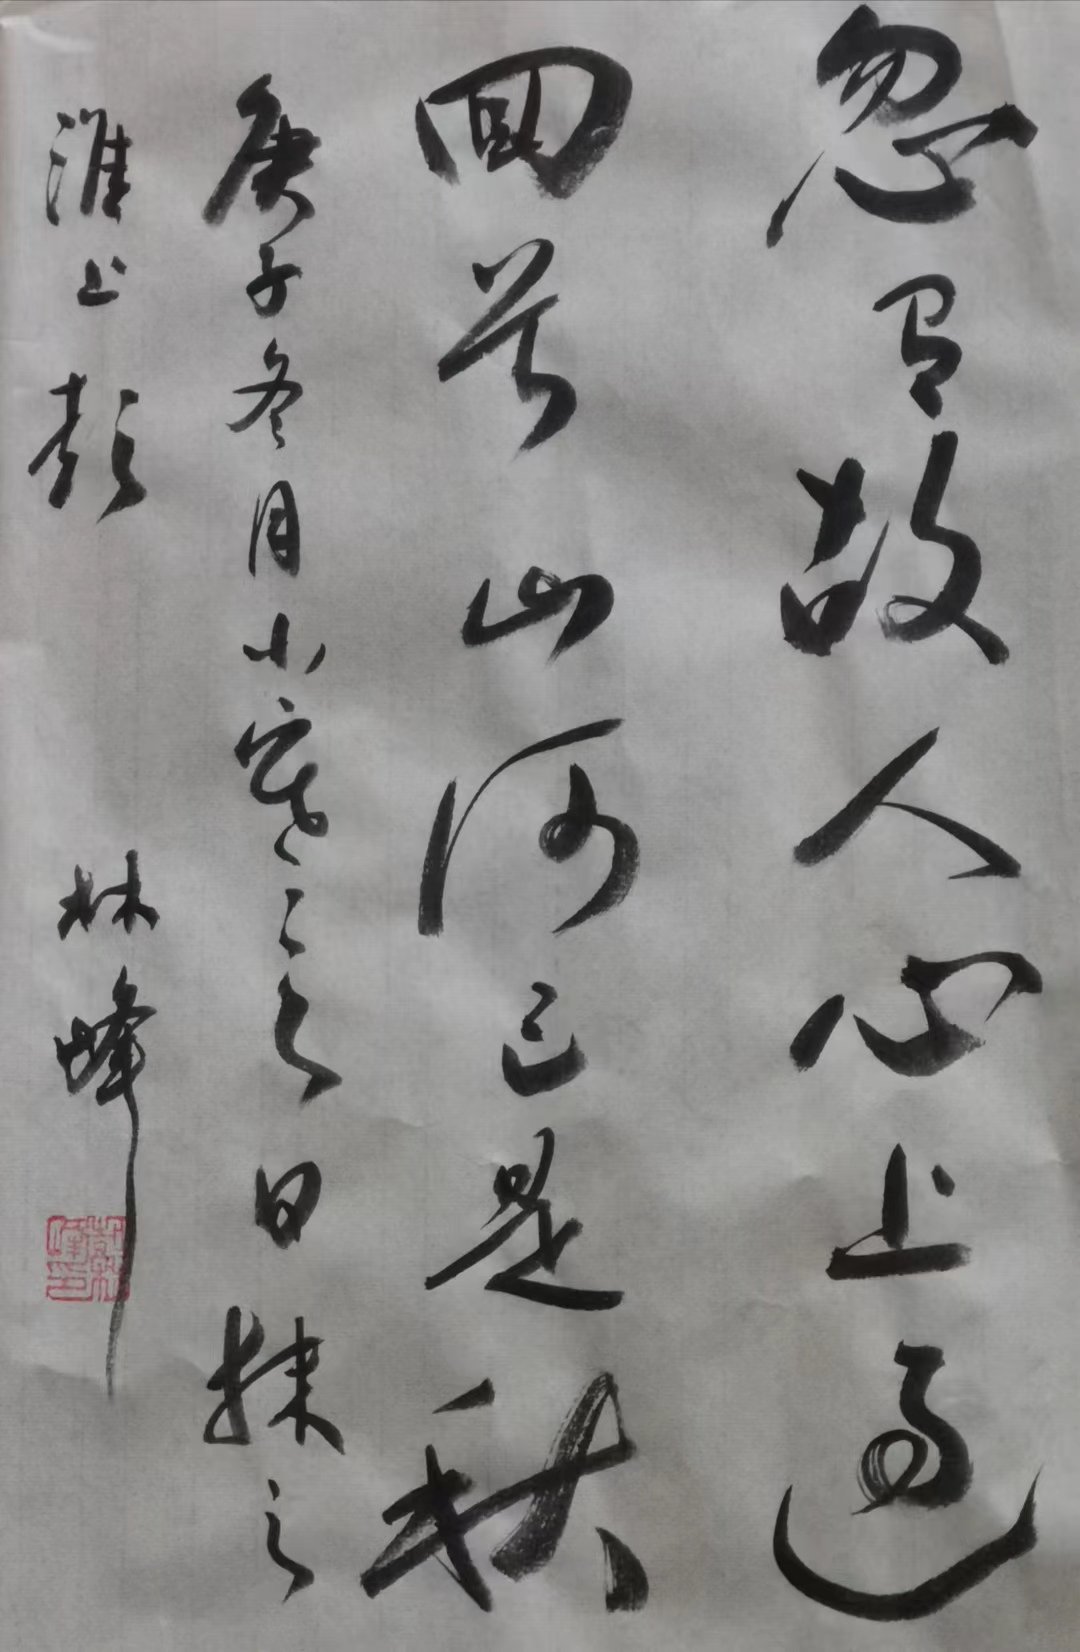 忽有故人心上过
回首山河已是秋
庚子冬月小寒之日抹之
淮上彭林峰
彭林峰印